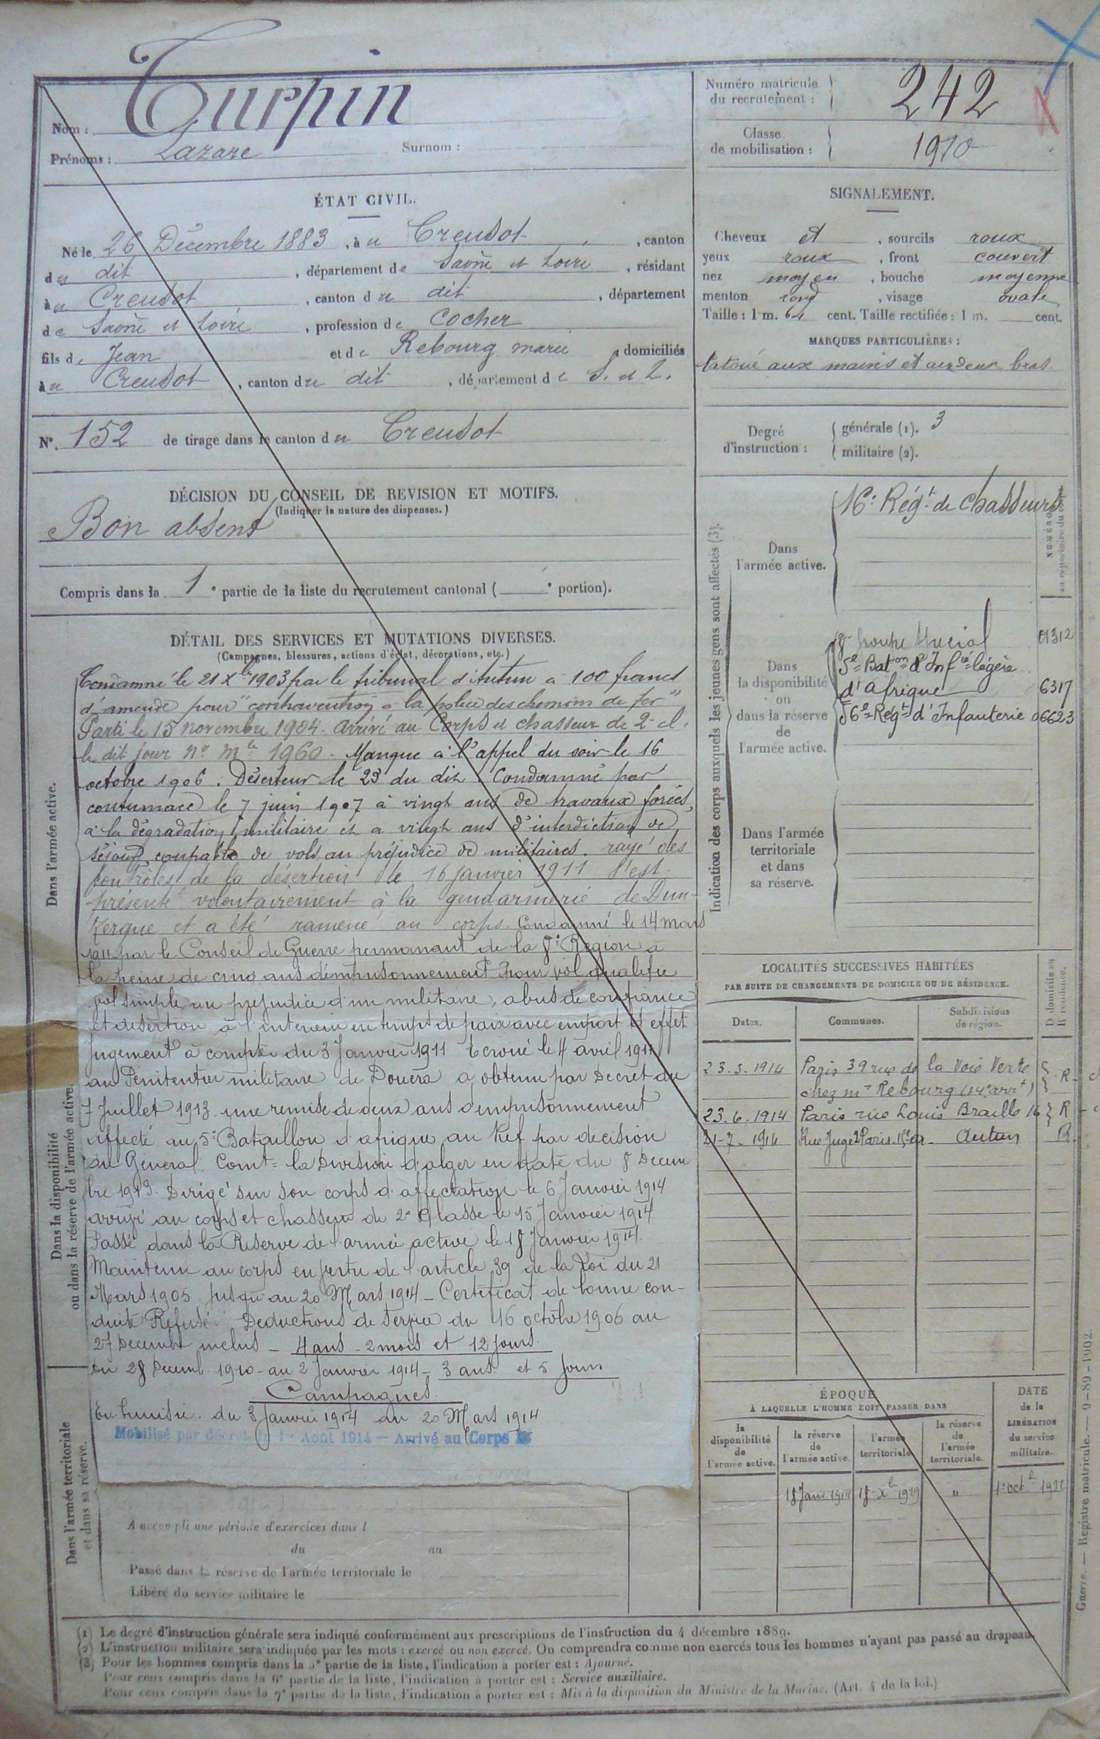 Nom : Turpin
Prénoms : Lazare Surnom :
Numéro matricule du recrutement : 242
Classe de mobilisation : 1910
ÉTAT CIVIL.
Né le 26 Décembre 1883, à u Creusot, canton
d u dit, département de Saône et Loire, résidant
à u Creusot, canton d u dit, département
d e Saône et Loire, profession de Cocher
fils de Jean et de Rebourg marie domiciliés
à u Creusot, canton du dit, département de S. et L.
N°. 152 de tirage dans le canton d u Creusot
DÉCISION DU CONSEIL DE REVISION ET MOTIFS.
(Indiquer la nature des dispenses.)
Bon absent
Compris dans la 1e partie de la liste du recrutement cantonal ( e portion).
SIGNALEMENT.
Cheveux et, sourcils roux
yeux roux, front couvert
nez moyen, bouche moyenne
menton rond, visage ovale
Taille : 1 m. cent. Taille rectifiée : 1 m. cent.
MARQUES PARTICULIÈRES :
tatoué aux mains et aux deux bras
Degré d'instruction : générale (1). 3
militaire (2).
Indication des corps auxquels les jeunes gens sont affectés (3).
Dans l'armée active.
16e Régt de Chasseurs
Dans la disponibilité ou dans la réserve de l'armée active.
8e Groupe Spécial 01312
5e Baton d'Infie légère
d'Afrique 6317
56e Régt d'Infanterie 06623
Dans l'armée territoriale et dans sa réserve.
DÉTAIL DES SERVICES ET MUTATIONS DIVERSES.
(Campagnes, blessures, actions d'éclat, décorations, etc.)
Dans l'armée active.
Condamné le 21 Xbre 1903 par le tribunal d'Autun à 100 francs
d'amende pour "contravention à la police des chemins de fer"
Parti le 15 novembre 1904. Arrivé au Corps et chasseur de 2e cl.
le dit jour no mle 1960. Manque à l'appel du soir le 16
octobre 1906. Déserteur le 23 du dit. Condamné par
contumace le 7 juin 1907 à vingt ans de travaux forcés,
à la dégradation militaire et à vingt ans d'interdiction de
séjour, coupable de vols au préjudice de militaires. rayé des
contrôles de la désertion le 16 janvier 1911 s'est
présenté volontairement à la gendarmerie de Dun
Kerque et a été ramené au corps. Condamné le 14 mars
1911 par le Conseil de Guerre permanant de la 8e Région à
la peine de cinq ans d'emprisonnement pour vol qualifié
vol simple au préjudice d'un militaire, abus de confiance
et désertion à l'intérieur en temps de paix avec emport d'effet
jugement à compter du 3 Janvier 1911 Ecroué le 4 avril 1911
au Pénitentier militaire de Douéra a obtenu par Décret du
7 Juillet 1913 une remise de deux ans d'emprisonnement
Affecté au 5e Bataillon d'afrique au Kef par décision
du Général Comt la Division d'alger en date du 8 Décem
bre 1913. Dirigé sur son corps d'affectation le 6 Janvier 1914
arrivé au corps et chasseur de 2e Classe le 15 Janvier 1914
Passé dans la Réserve de l'armée active le 18 Janvier 1914.
Maintenu au corps en vertu de l'article 39 de la Loi du 21
Mars 1905 jusqu'au 20 Mars 1914 - Certificat de bonne con-
duite Refusé Déductions de service du 16 octobre 1906 au
27 Décembre inclus - 4 ans 2 mois et 12 jours
du 28 Décemb. 1910 au 2 Janvier 1914 - 3 ans et 5 jours
Campagnes.
En Tunisie du 3 Janvier 1914 au 20 Mars 1914
Mobilisé par décret du 1er Août 1914 - Arrivé au Corps le
Dans la disponibilité ou dans la réserve de l'armée active.
Dans l'armée territoriale et dans sa réserve.
A accompli une période d'exercices dans l
du au
Passé dans la réserve de l'armée territoriale le
Libéré du service militaire le
LOCALITÉS SUCCESSIVES HABITÉES
PAR SUITE DE CHANGEMENTS DE DOMICILE OU DE RÉSIDENCE.
Dates. Communes. Subdivisions de région. D domicile ou R résidence.
23.3.1914 Paris 39 rue de la Voie Verte
chez mr Rebourg (14e arrt) R
23.6.1914 Paris rue Louis Braille 16 R
21-7-1914 Autun R.
ÉPOQUE
À LAQUELLE L'HOMME DOIT PASSER DANS
la disponibilité de l'armée active.
la réserve de l'armée active.
l'armée territoriale.
la réserve de l'armée territoriale.
DATE de la LIBÉRATION du service militaire.
18 Janv 1914 18 Xbre 1919 "
Guerre. — Registre matricule. — 9-89-1902.
(1) Le degré d'instruction générale sera indiqué conformément aux prescriptions de l'instruction du 4 décembre 1889.
(2) L'instruction militaire sera indiquée par les mots : exercé ou non exercé. On comprendra comme non exercés tous les hommes n'ayant pas passé au drapeau.
(3) Pour les hommes compris dans la 5e partie de la liste, l'indication à porter est : Ajourné.
Pour ceux compris dans la 6e partie de la liste, l'indication à porter est : Service auxiliaire.
Pour ceux compris dans la 7e partie de la liste, l'indication à porter est : Mis à la disposition du Ministre de la Marine. (Art. 4 de la loi.)